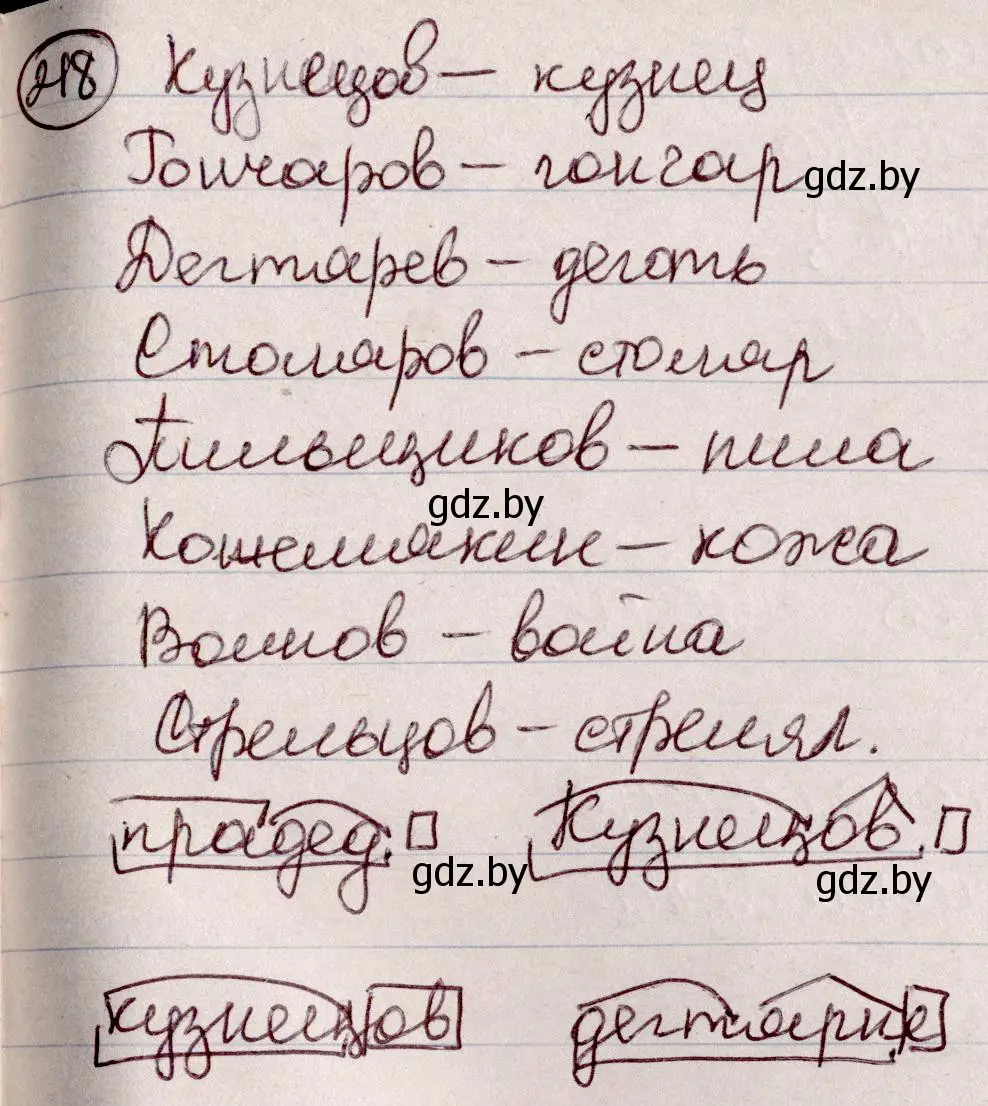 218 Кузнецов — кузнец
Гончаров — гончар
gdz.by
Дегтярев — деготь
Столяров — столяр
Пильщиков — пила
gdz.by
Кожемякин — кожа
Воинов — война
Стрельцов — стрелял.
прадед Кузнецов
gdz.by gdz.by
кузнецов дегтярн